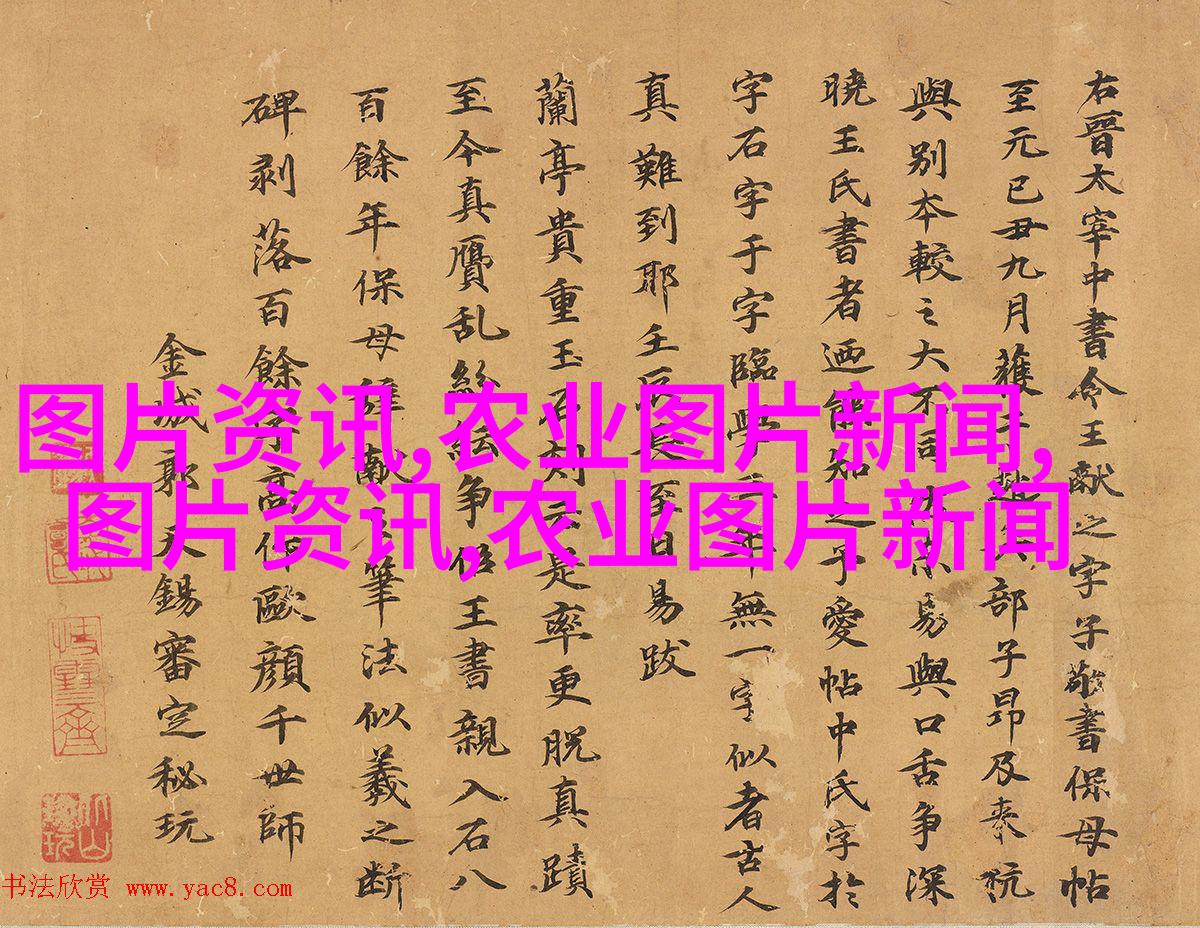 右晉太宰中書令王獻之字子敬書保母帖
至元己丑九月獲部子昂及来杭
與别本較之大不同易與口舌争深
曉王氏書者迺能知之予愛帖中氏字於
字石字于字臨學三年無一字似者古人
真難到耶壬辰長至日易跋
蘭亭貴重玉石刻是率更脱真蹟
至今真贋乱絲紜争似王書親入石八
百餘年保母獻之筆法似羲之断
碑剥落百餘字高歐顔千世師
金城郭天錫審定秘玩
图片资讯,农业图片新闻,
图片资讯,农业图片新闻
书法欣赏 www.yac8.com